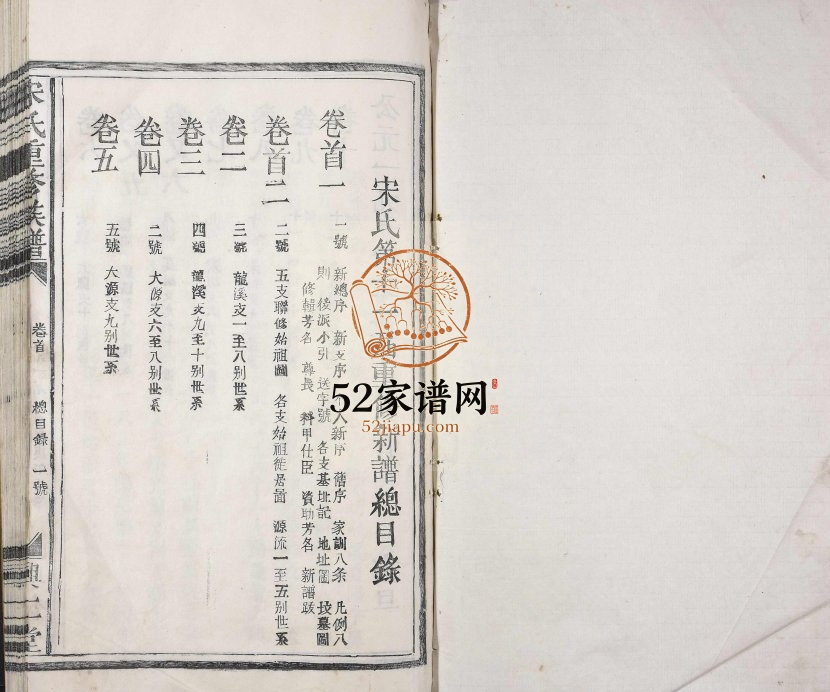 宋氏第 重 新譜總目錄
卷首一 一號 新總序 新支序 人新序 舊序 家訓八条 凡例八
則 後派小引 送字號 各支基址記 地址圖 坟墓圖
修輯芳名 尊長 科甲仕臣 資助芳名 新譜跋
卷首二 二號 五支聯修始祖圖 各支始祖徙居圖 源流一至五别世系
卷二 三號 龍溪支一至八别世系
卷三 四號 龍溪支九至十别世系
卷四 二號 大源支六至八别世系
卷五 五號 大源支九别世系
宋氏重修族譜 卷首 總目錄 一號 堂
52家谱网
52jiapu.com